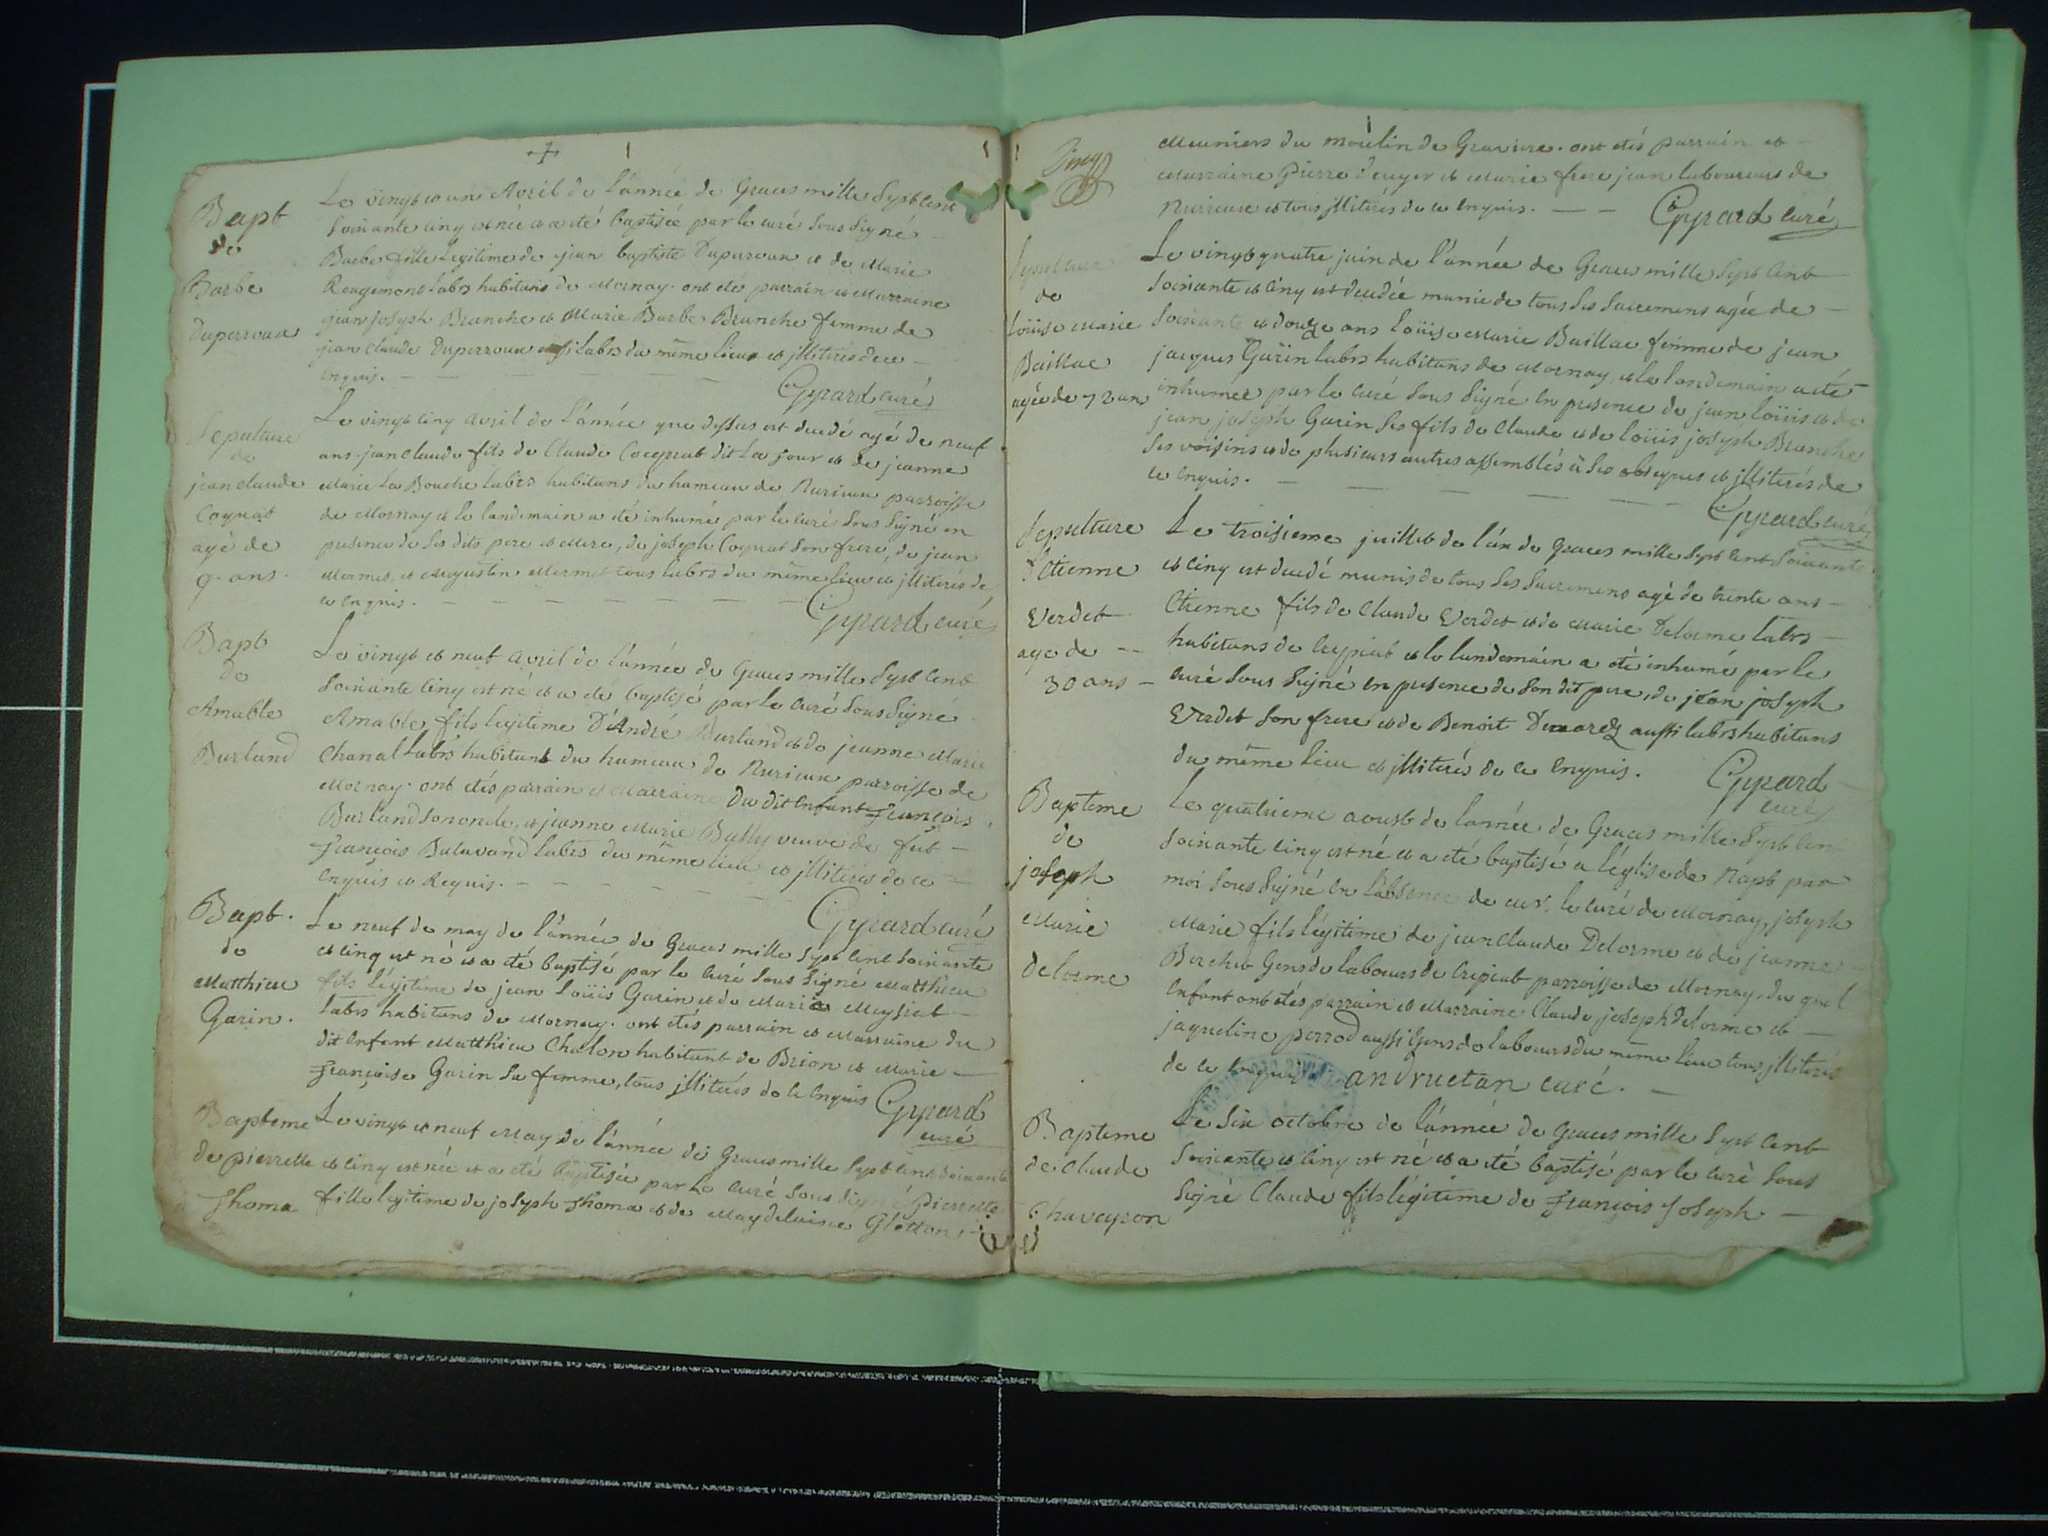 Bapt
de
Barbe
Duperroux
Le vingt et un Avril de l'année de Graces mille Sept Cent
Soixante Cinq est née et a été baptisée par le curé Sous Signé
Barbe fille légitime de jean baptiste Duperroux et de Marie
Rougemont labrs habitans de Mornay. ont été parrain et Marraine
jean joseph Branche et Marie Barbe Branche femme de
jean Claude Duperroux aussi labrs du même lieu et illiterés de ce
enquis.
Gyrard curé
Sepulture
de
jean claude
Cognat
agé de
9. ans.
Le vingt Cinq avril de l'année que dessus est decedé agé de neuf
ans jean Claude fils de Claude Cocgniat dit La jour et de jeanne
Marie La Bouche labrs habitans du hameau de Nurieux parroisse
de Mornay et le landemain a été inhumé par le curé Sous Signé en
presence de Ses dits pere et mere, de joseph Cognat Son frere, de jean
Mermet, et Augustin Mermet tous labrs du même lieu et illiterés de
ce enquis.
Gyrard curé
Bapt
de
Amable
Burland
Le vingt et neuf avril de l'année de Graces mille Sept Cent
Soixante Cinq est né et a été baptisé par le curé Sous Signé
Amable fils légitime D'André Burland et de jeanne Marie
Chanal labrs habitant du hameau de Nurieux parroisse de
Mornay. ont étés parrain et Marraine du dit Enfant François
Burland Son oncle, et jeanne Marie Bally veuve de fut
François Balavand labrs du même lieu et illiterés de ce
enquis et Requis.
Gyrard curé
Bapt.
de
Matthieu
Garin.
Le neuf de may de l'année de Graces mille Sept Cent Soixante
et Cinq est né et a été baptisé par le Curé Sous Signé Matthieu
fils légitime de jean Loüis Garin et de Marie Meyriat
labrs habitans de Mornay. ont étés parrain et Marraine du
dit Enfant Matthieu Chalon habitant de Brion et Marie
Françoise Garin Sa femme, tous illiterés de ce enquis Gyrard
curé
Bapteme
de pierrette
Thoma
Le vingt et neuf May de l'année de Graces mille Sept Cent Soixante
et Cinq est née et a été baptisée par le Curé Sous Signé Pierrette
fille legitime de joseph Thoma et de Magdelaine Gletton
Cinq
Meuniers du moulin de Graviere. ont étés parrain et
Marraine Pierre Druyer et Marie frere jean laboureurs de
Nurieux et tous illiterés de ce enquis.
Gyrard curé
Sepulture
de
loüise Marie
Baillac
agée de 72 an
Le vingt quatre juin de l'année de Graces mille Sept Cent
Soixante et Cinq est decedée munie de tous Ses Sacremens agée de
Soixante et douze ans Loüise Marie Baillac femme de jean
jacques Garin labrs habitans de Mornay, et le landemain a été
inhumée par le curé Sous Signé en presence de jean Loüis et de
jean joseph Garin Ses fils de Claude et de Loüis joseph Branche
Ses voisins et de plusieurs autres assemblés à Ses obseques et illiterés de
ce enquis.
Gyrard curé
Sepulture
d'Etienne
Verdet
agé de
30 ans
Le troisieme juillet de l'an de Graces mille Sept Cent Soixante
et Cinq est decedé munis de tous Ses Sacremens agé de trente ans
Etienne fils de Claude Verdet et de Marie Delorme labrs
habitans de Crepiat et le landemain a été inhumé par le
curé Sous Signé en presence de Son dit pere, de jean joseph
Verdet Son frere et de Benoit Dumarez aussi labrs habitans
du même lieu et illiterés de ce enquis.
Gyrard
curé
Bapteme
de
joseph
Marie
delorme
Le quatrieme aoust de l'année de Graces mille Sept Cent
Soixante cinq est né et a été baptisé a l'église de Napt par
moi Sous Signé en l'absence de mr. le curé de Mornay, joseph
Marie fils légitime de jean Claude Delorme et de jeanne
Berchet Gens de labours de Crepiat parroisse de Mornay, du quel
Enfant ont étés parrain et Marraine Claude joseph delorme et
jaqueline perrod aussi Gens de labours du même lieu tous illiterés
de ce enquis
andructan curé.
Bapteme
de Claude
Chaveyron
Le Six octobre de l'année de Graces mille Sept Cent
Soixante et Cinq est né et a été baptisé par le curé Sous
Signé Claude fils légitime de François Joseph